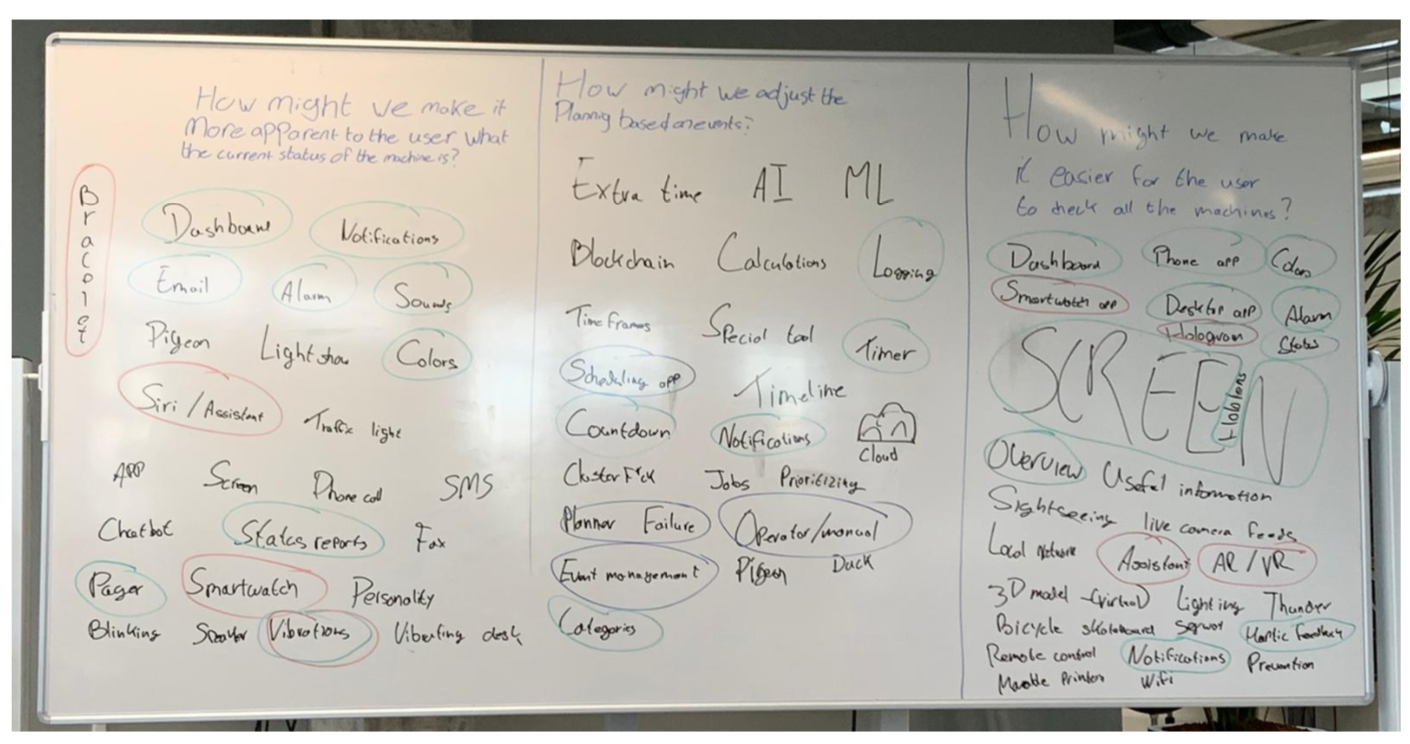 How might we make it
More apparent to the user what
the current status of the machine is?
Bracelet
Dashboard Notifications
Email Alarm Sounds
Pigeon Light show Colors
Siri / Assistant Traffic light
APP Screen Phone call SMS
Chatbot Status reports Fax
Pager Smartwatch Personality
Blinking Speaker Vibrations Vibrating desk
How might we adjust the
Planning based on events?
Extra time AI ML
Blockchain Calculations Logging
Time frames Special tool Timer
Scheduling app Timeline
Countdown Notifications Cloud
Cluster F*ck Jobs Prioritizing
Planner Failure Operator/manual
Event management Pigeon Duck
Categories
How might we make
it easier for the user
to check all the machines?
Dashboard Phone app Colors
Smartwatch app Desktop app Alarm
Hologram Status
SCREEN
Hololens
Overview Useful information
Sightseeing live camera feeds
Local Network Assistant AR / VR
3D model (virtual) Lighting Thunder
Bicycle skateboard Segway Haptic feedback
Remote control Notifications Prevention
Movable Printers Wifi